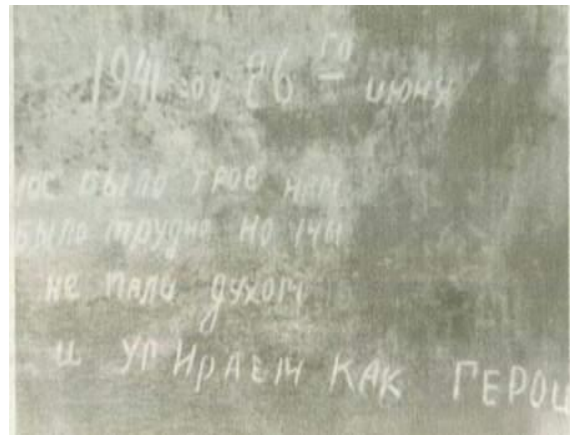 1941 году 26 го июня
нас было трое нам
было трудно но мы
не пали духом
и умираем как герои